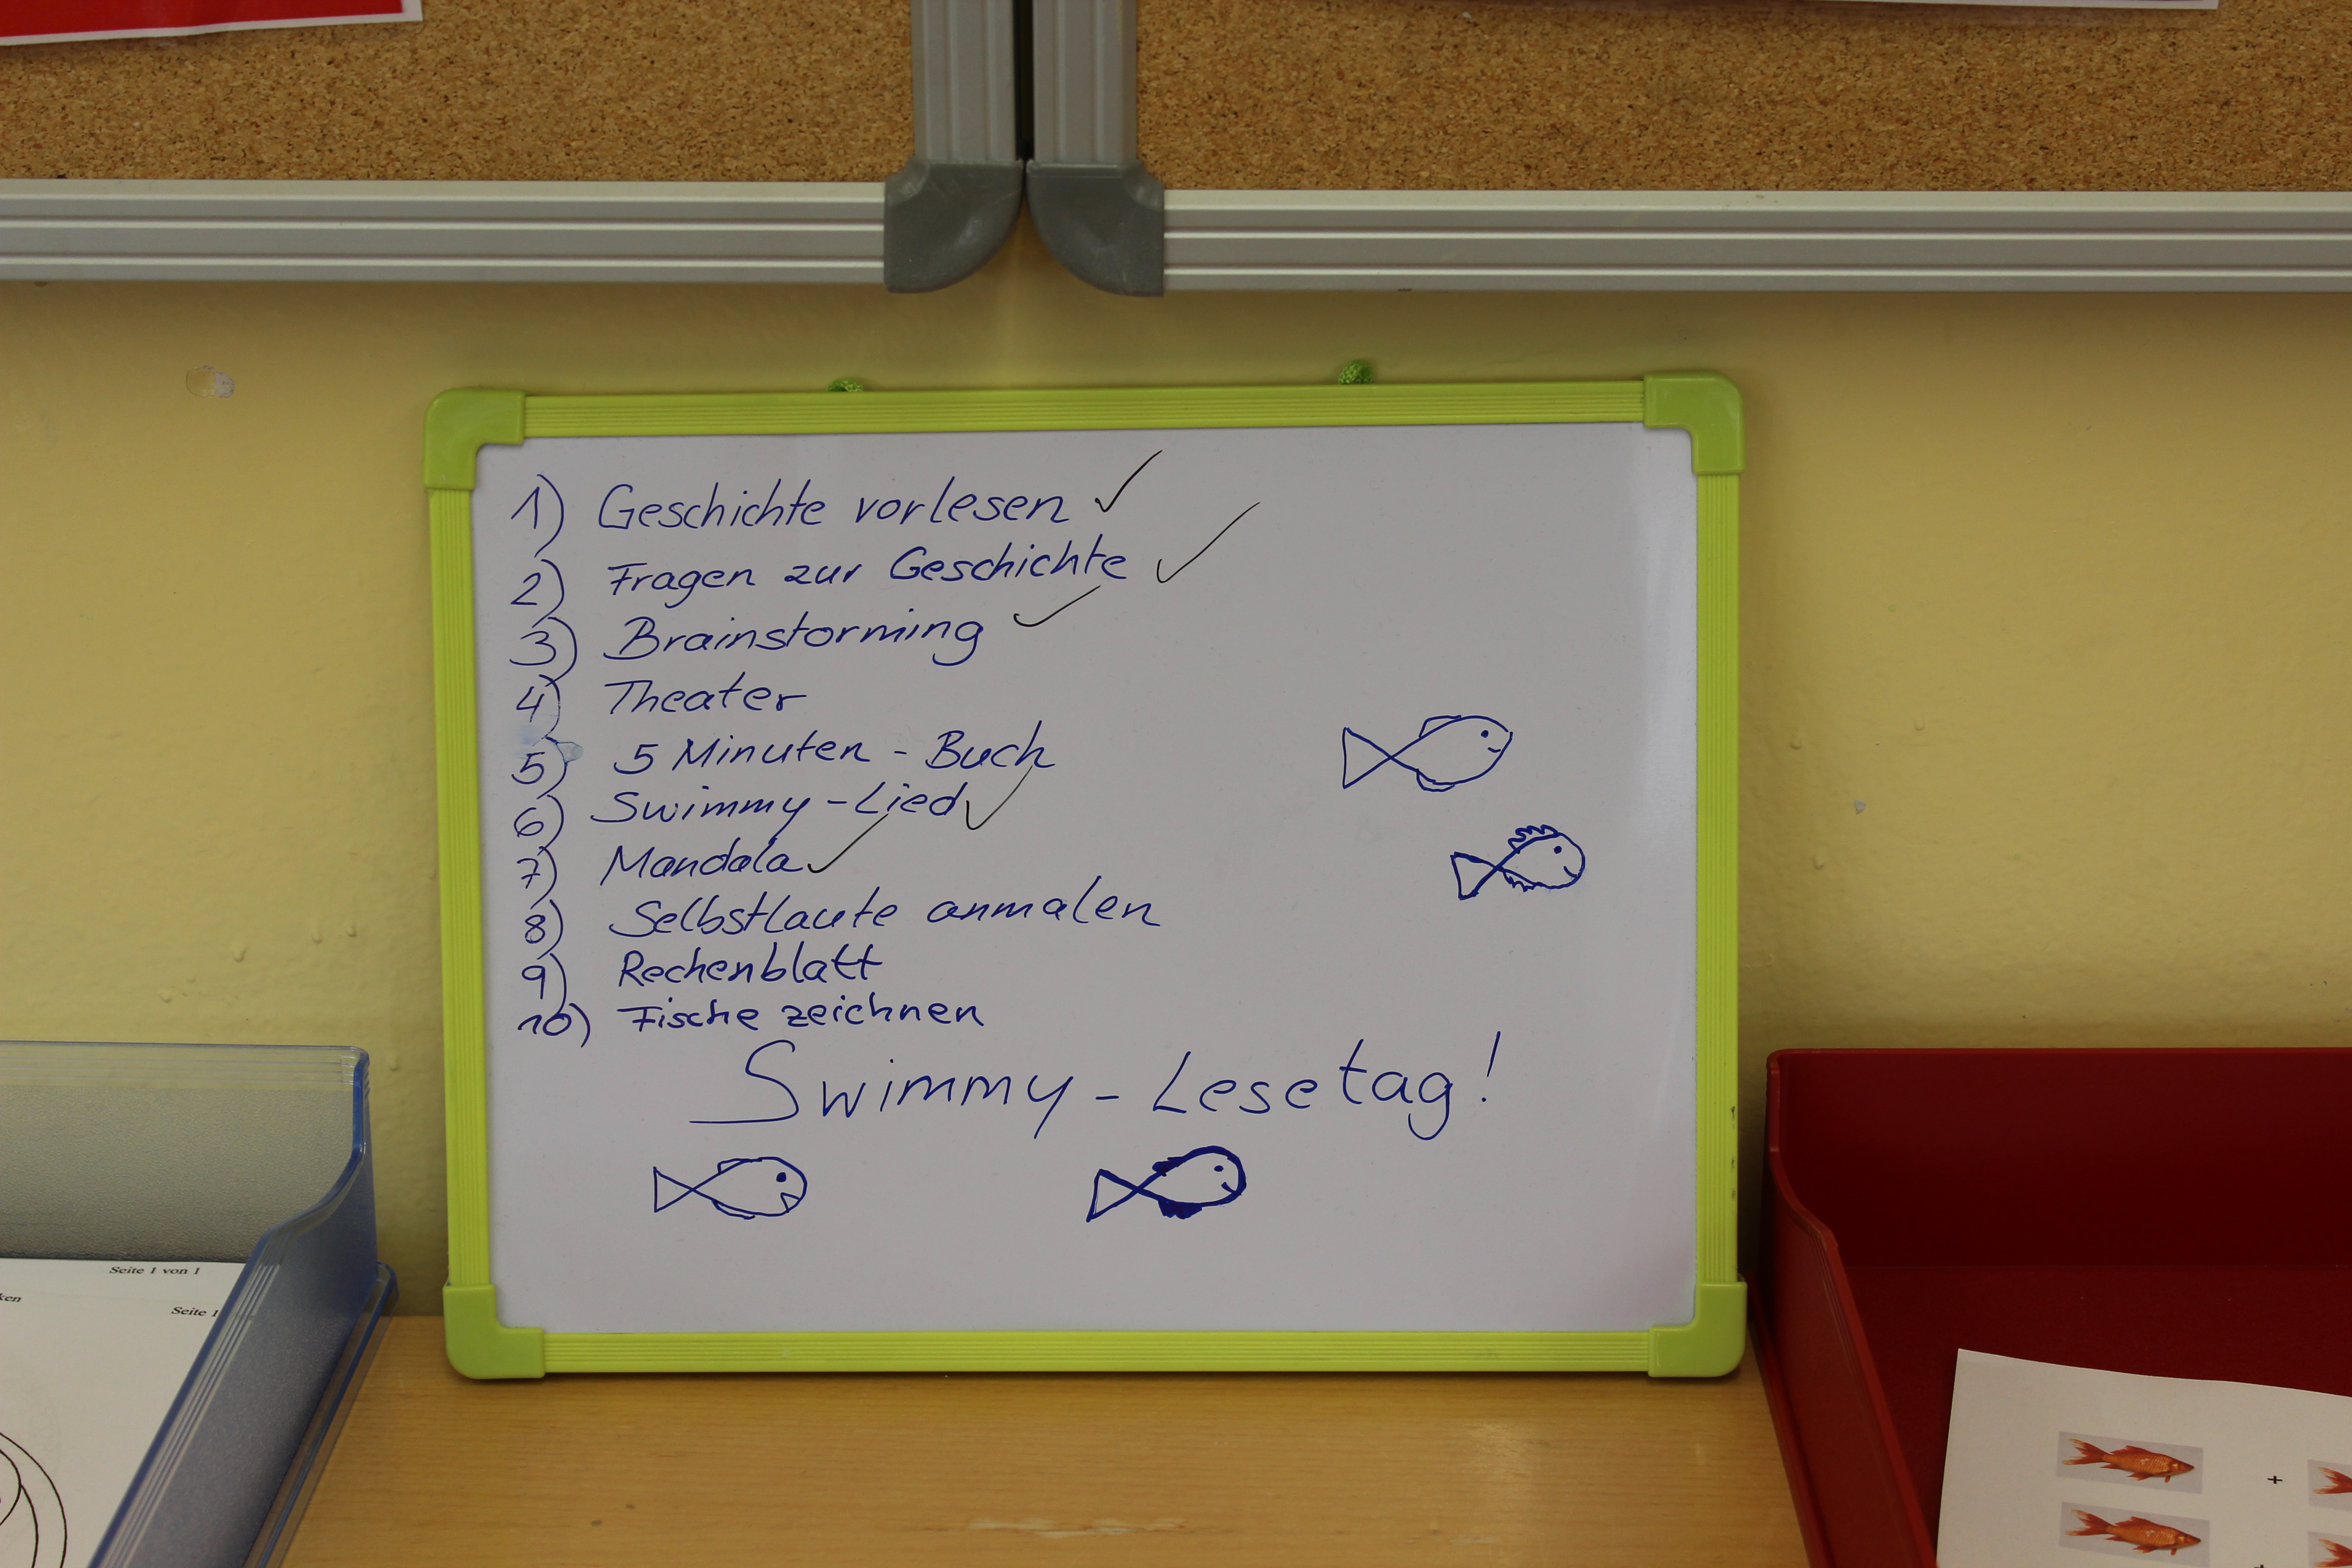 1) Geschichte vorlesen ✓
2) Fragen zur Geschichte ✓
3) Brainstorming ✓
4) Theater
5) 5 Minuten - Buch
6) Swimmy - Lied ✓
7) Mandala ✓
8) Selbstlaute anmalen
9) Rechenblatt
10) Fische zeichnen
Swimmy - Lesetag!
Seite 1 von 1
Seite 1
+